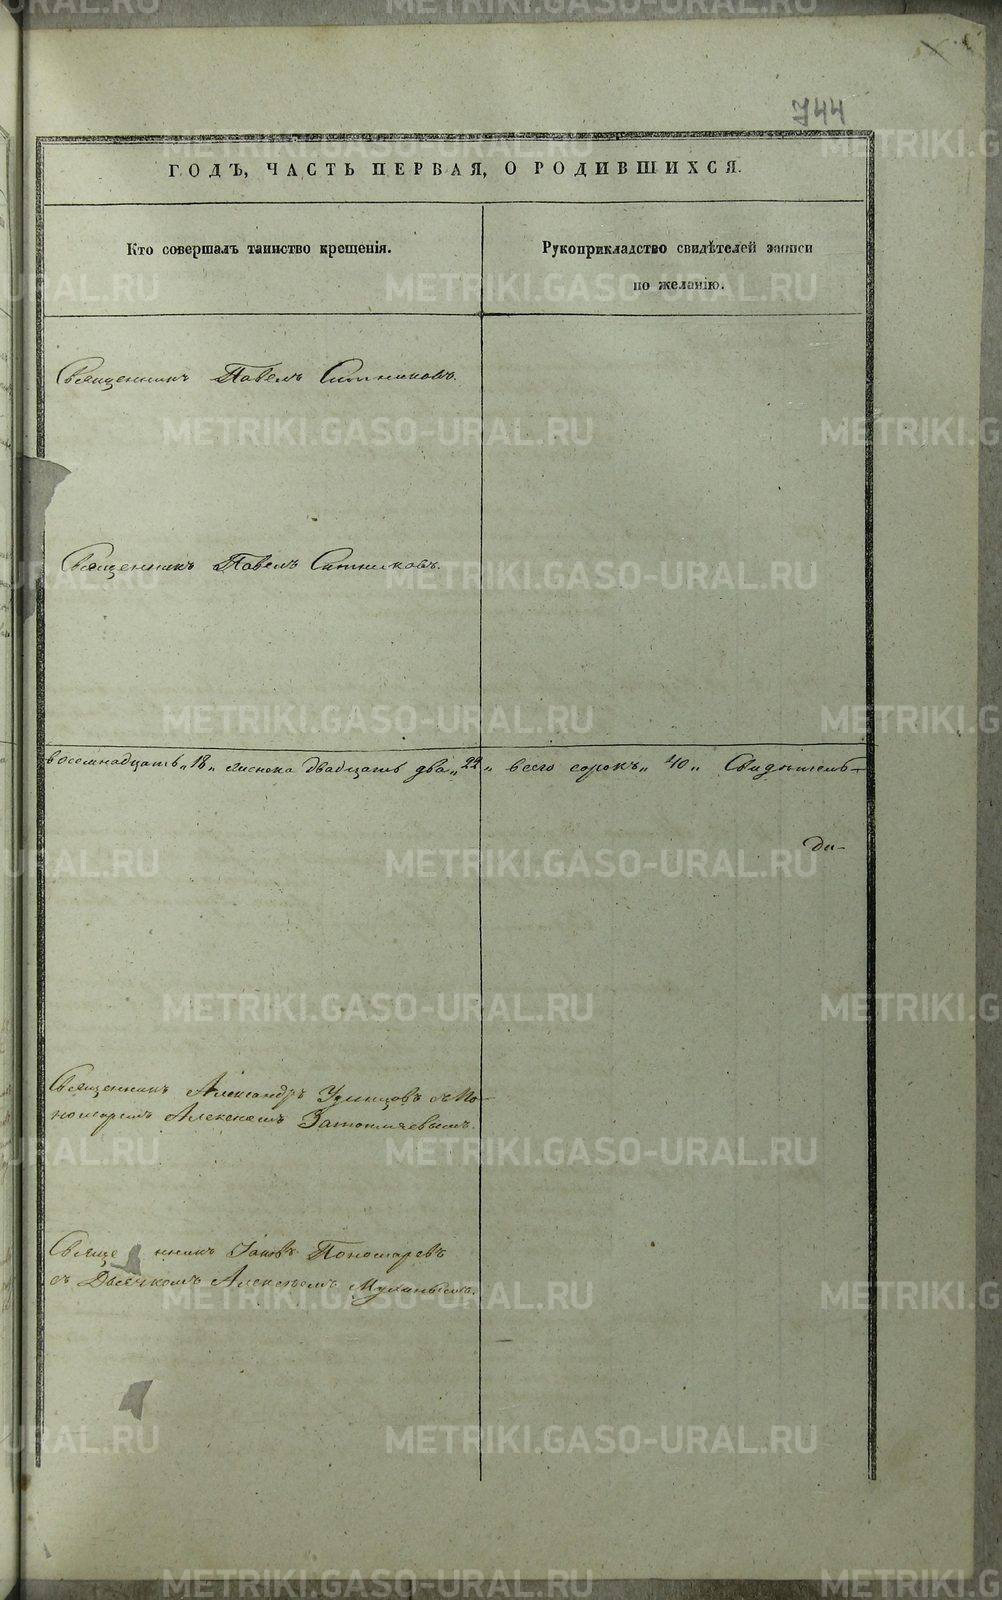 744
ГОДЪ, ЧАСТЬ ПЕРВАЯ, О РОДИВШИХСЯ.
Кто совершалъ таинство крещенія.
Рукоприкладство свидѣтелей записи
по желанію.
Священникъ Павелъ Ситниковъ.
Священникъ Павелъ Ситниковъ.
восемнадцать „18„ женска двадцать два „22„ всего сорокъ „40„ Свидѣтель-
ди-
Священникъ Александръ Удинцовъ с По-
номаремъ Алексѣемъ
Священникъ Іаковъ Пономаревъ
съ Дьячкомъ Алексѣемъ
METRIKI.GASO-URAL.RU